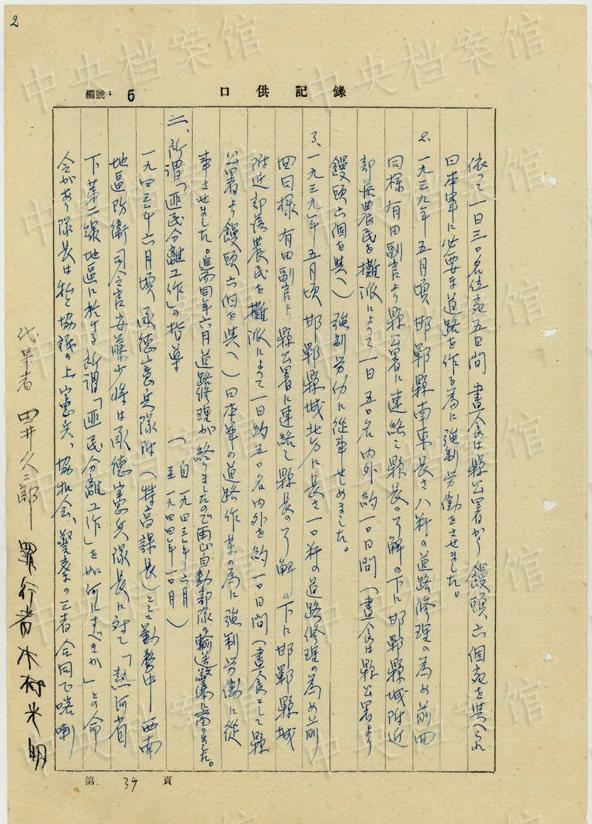 2
編號: 6
口供記錄
依って一日三〇名位宛五日間 晝食は縣公署から饅頭六個宛を與へられ
日本軍に必要な道路を作る為に強制労働をさせました。
2、一九三九年五月頃 邯鄲縣南東長さ八粁の道路修理の為め前回
同様有田副官より縣公署に連絡し縣長の了解の下に邯鄲縣城附近
部落農民を攤派によって一日五〇名内外約一〇日間（晝食は縣公署より
饅頭六個を與へ）強制労働に從事せしめました。
3、一九三九年五月頃 邯鄲縣城北方に長さ一〇粁の道路修理の為め前
回同様有田副官より縣公署に連絡し縣長の了解の下に邯鄲縣城
附近部落農民を攤派によって一日約五〇名内外を約一〇日間（晝食として縣
公署より饅頭六個を與へ）日本軍の道路作業の為に強制労働に從
事させました。同年六月道路修理が終りましたので自動車部隊の輸送
二、所謂「匪民分離工作」の指導
（自一九四三年六月
至一九四四年一〇月）
一九四三年六月頃 承德憲兵隊附（特高課長）として勤務中 西南
地區防衛司令官安藤少將は承德憲兵隊長に対し「熱河省
下第二線地區に於ける所謂「匪民分離工作」を如何にすべきか」との命
令があり隊長は私と協議の上憲兵、協和会、警察の三者合同で喀喇
代筆者 田井久二郎 罪行者 木村光明
第 34 頁
中央档案馆